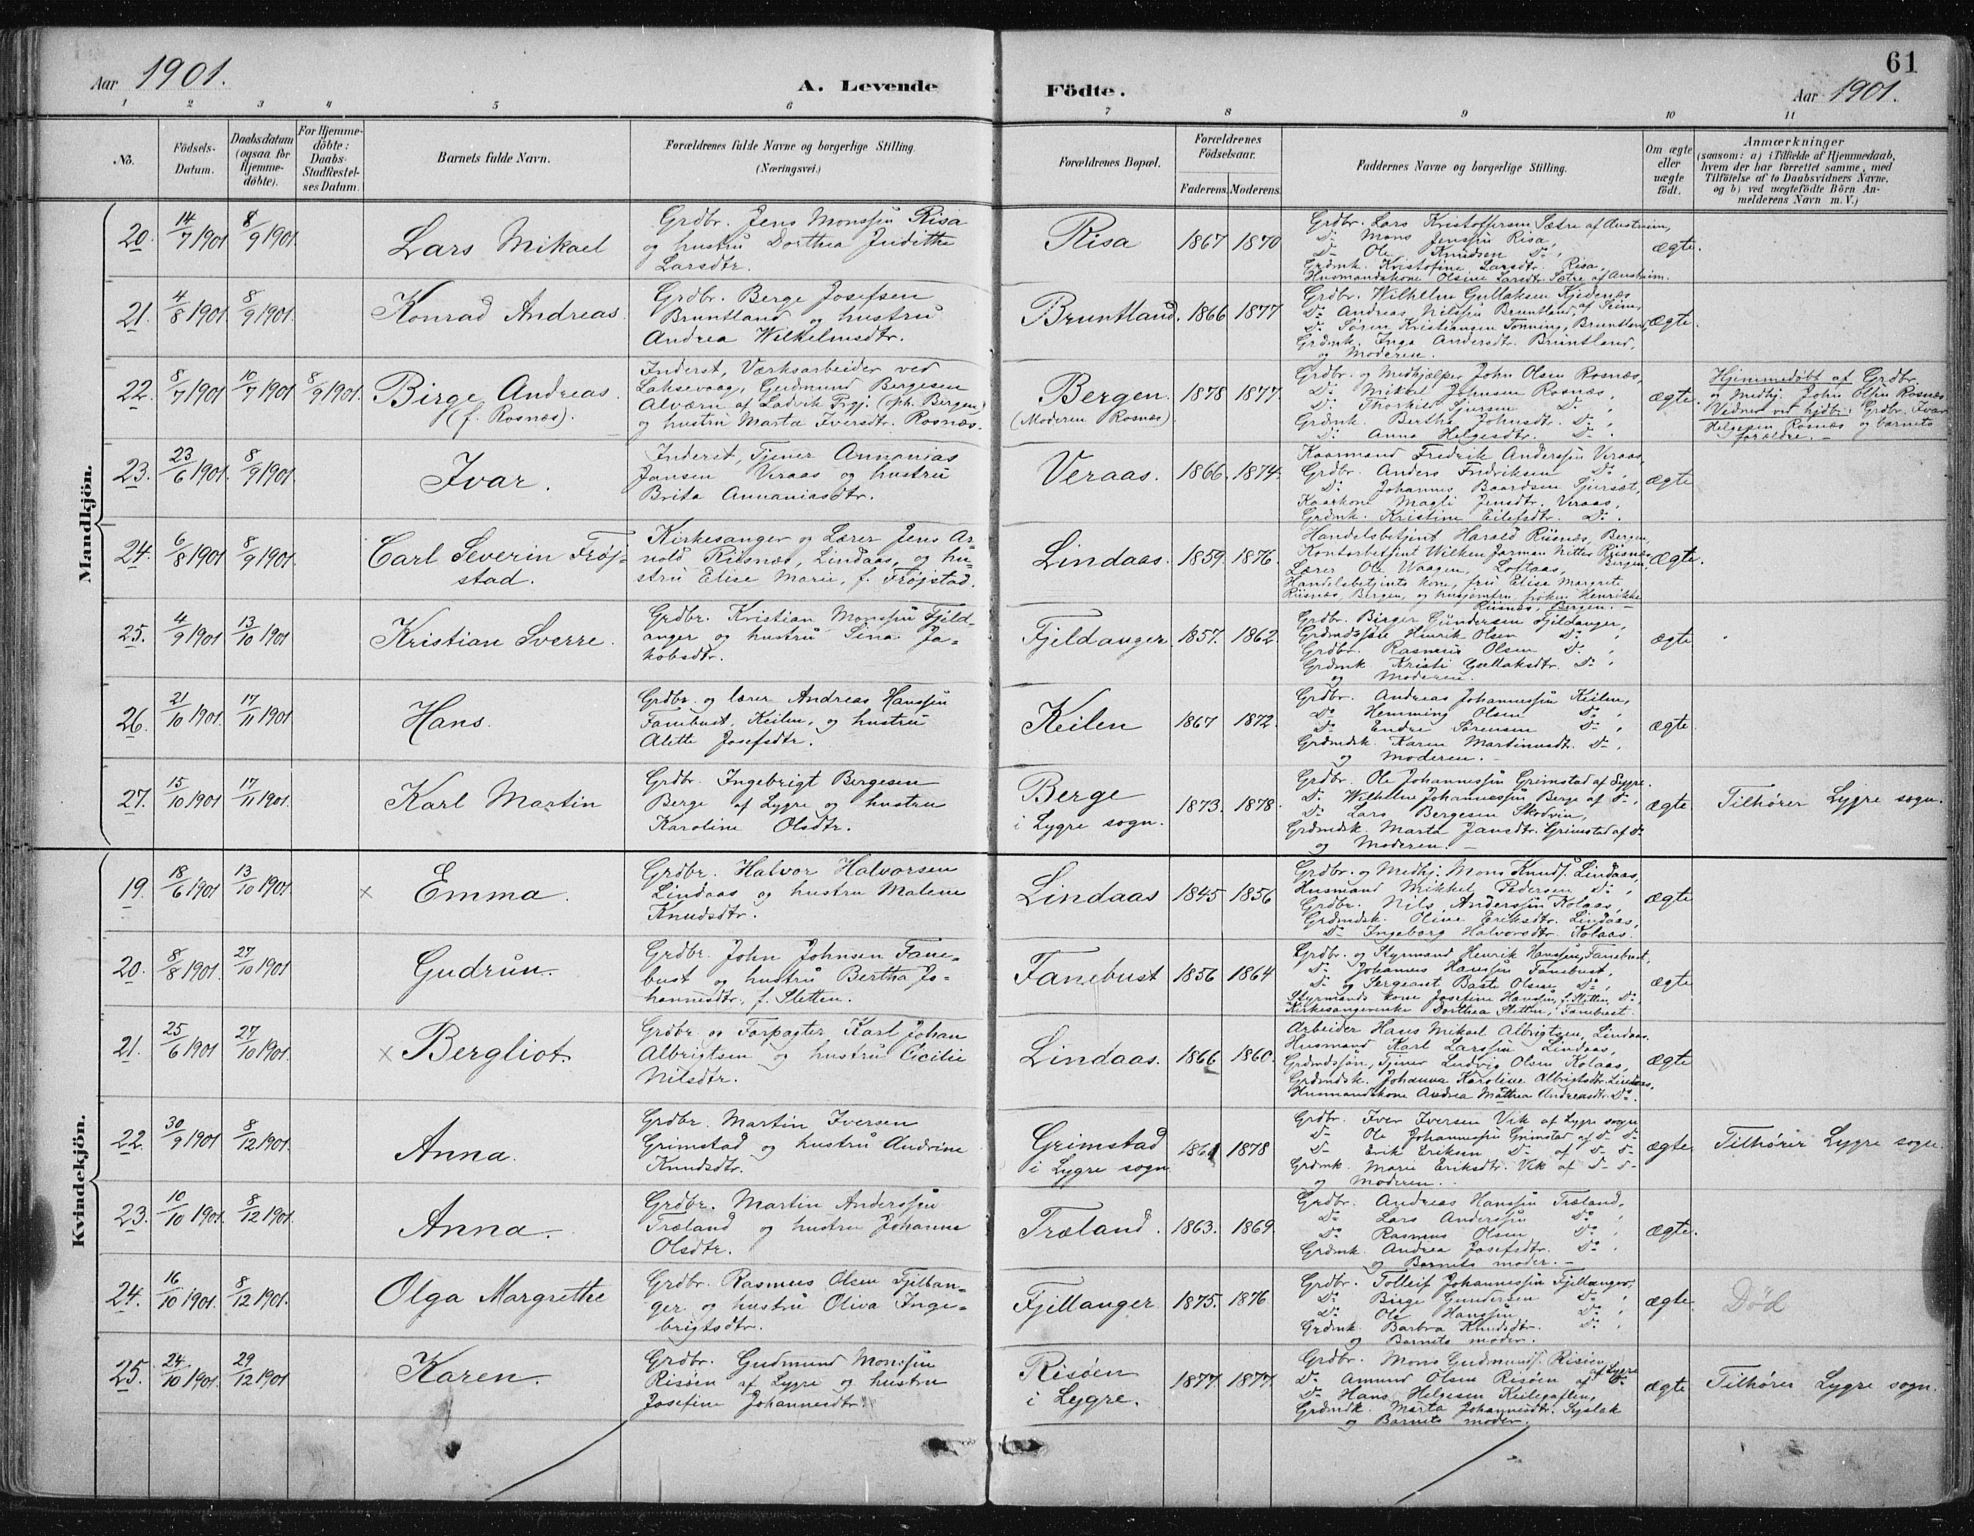 61
Aar 1901.
A. Levende Födte.
Aar 1901.
1 2 3 4 5 6 7 8 9 10 11
No.
Födsels-
Datum.
Daabsdatum
(ogsaa for
Hjemme-
döbte).
For Hjemme-
döbte:
Daabs-
Stadfæstel-
ses Datum.
Barnets fulde Navn.
Forældrenes fulde Navne og borgerlige Stilling.
(Næringsvei.)
Forældrenes Bopæl.
Forældrenes
Födselsaar.
Faderens. Moderens.
Faddernes Navne og borgerlige Stilling.
Om ægte
eller
uægte
födt.
Anmærkninger
(saasom: a) i Tilfælde af Hjemmedaab,
hvem der har forrettet samme, med
Tilföielse af to Daabsvidners Navne,
og b) ved uægtefödte Börn An-
melderens Navn m. V.)
Mandkjön.
20. 14/7 1901 8/9 1901. Lars Mikael
Grdbr. Jens Monssøn Risa
og hustru Dorthea Judithe
Larsdtr.
Risa 1867 1870
Grdbr. Lars Kristoffersen Sætre af Austrheim,
Do Mons Jenssøn Risa,
Do Ole Knudsen Do,
Grdmk. Kristofine Larsdtr. Risa,
Husmandskone Olsine Larsdt. Sætre af Austrheim.
ægte.
21. 4/8 1901 8/9 1901. Konrad Andreas.
Grdbr. Berge Josefsen
Bruntland og hustru
Andrea Wilhelmsdtr.
Bruntland. 1866 1877
Grdbr. Wilhelm Gullaksen Kjednæs
Do Andreas Nilssøn Bruntland, af Seim,
Do Søren Kristiansen Tonning, Bruntland,
Grdmk. Inga Andersdtr. Bruntland,
og Moderen.
ægte.
22. 8/7 1901 10/7 1901 8/9 1901. Birge Andreas.
(f. Rosnæs).
Inderst, Værksarbeider ved
Laksevaag, Gudmund Bergesen
Alværn af Ladvik Prgj. (ph. Bergen)
og hustru Marta Iversdtr. Rosnæs.
Bergen.
(Moderen Rosnæs)
1878 1877.
Grdbr. og Medhjælper John Olsen Rosnæs,
Do Mikkel Johnsen Rosnæs,
Do Thorkil Sjursen Do,
Grdmk. Berthe Johnsdtr. Do,
Do Anna Helgesdtr. Do
ægte.
Hjemmedøbt af Grdbr.
og Medhj. John Olsøn Rosnæs
Vidner ved hjdb: Grdbr. Ivar
Helgesen Rosnæs og barnets
forældre.
23. 23/6 1901. 8/9 1901. Ivar.
Inderst, Tjener Annanias
Jansen Veraas og hustru
Brita Annaniasdtr.
Veraas. 1866. 1874.
Kaarmand Fredrik Anderssøn Veraas,
Grdbr. Anders Fredriksen Do
Do Johannes Baardsen Sjurset,
Kaarkone Magli Jensdtr. Veraas,
Grdmk. Kristine Eilefsdtr. Do.
ægte
24. 6/8 1901 8/9 1901. Carl Severin Frøj-
stad.
Kirkesanger og Lærer Jens Ar-
nold Riisnæs, Lindaas, og hu-
stru Elise Marie, f. Frøjstad.
Lindaas. 1859. 1876.
Handelsbetjent Harald Riisnæs, Bergen,
Kontorbetjent Wilken Jarman Nitter Riisnæs
Lærer Ole Waagen, Loftaas, Bergen,
Handelsbetjents kone, fru Elise Margrete
Riisnæs, Bergen, og husjomfru, frøken Henrikke
Riisnæs, Bergen.
ægte.
25. 4/9 1901 13/10 1901 Kristian Sverre.
Grdbr. Kristian Monssøn Fjeld-
anger og hustru Sina Ja-
kobsdtr.
Fjeldanger. 1857. 1862.
Grdbr. Birger Gundersen Fjeldanger,
Grdmdsføst Henrik Olsen Do,
Grdbr. Rasmus Olsen Do,
Grdmk Kristi Gullaksdtr. Do,
og Moderen.
ægte
26. 21/10 1901 17/11 1901. Hans.
Grdbr. og lærer Andreas Hanssøn
Fanebust, Keilen, og hustru
Alette Josefsdtr.
Keilen 1867 1872.
Grdbr. Andreas Johannessøn Keilen,
Do Hemming Olsen Do,
Do Endre Sørensen Do,
Grdmdsk. Karen Martinusdt. Do,
og Moderen.
ægte.
27. 15/10 1901 17/11 1901. Karl Martin
Grdbr. Ingebrigt Bergesen
Berge af Lygre og hustru
Karoline Olsdtr.
Berge
i Lygre sogn.
1873. 1878.
Grdbr. Ole Johannessøn Grimstad af Lygre.
Do Wilhelm Johannessøn Berge af Do,
Do Lars Bergesen Skodvin,
Grdmdsk. Marta Jansdtr. Grimstad af Do
og Moderen.
ægte Tilhører Lygre sogn.
Kvindekjön.
19. 18/6 1901 13/10 1901. × Emma.
Grdbr. Halvor Halvorsen
Lindaas og hustru Malene
Knudsdtr.
Lindaas 1845 1856
Grdbr. og Medhj. Mons Knuds. Lindaas,
Husmand Mikkel Pedersen Do,
Grdbr. Nils Anderssøn Kolaas,
Grdmdsk. Oline Eriksdtr. Lindaas,
Do Ingeborg Halvorsdtr. Kolaas.
ægte
20. 8/8 1901 27/10 1901 Gudrun.
Grdbr. John Johnsen Fane-
bust og hustru Bertha Jo-
hannesdtr. f. Sletten.
Fanebust 1856 1864
Grdbr. og Styrmand Henrik Hanssøn, Fanebust,
Do Johannes Hanssøn Fanebust,
Do og Sergeant Baste Olsen Do,
Styrmands kone Josefine Hanssøn, f. Sletten, Do,
Kirkesangerenke Dorthea Sletten, Fanebust.
ægte
21. 25/6 1901 27/10 1901. × Bergliot.
Grdbr og Forpagter Karl Johan
Albrigtsen og hustru Cicilie
Nilsdtr.
Lindaas. 1866 1860.
Arbeider Hans Mikael Albrigtsen, Lindaas.
Husmand Karl Larssøn Lindaas,
Grdmdssøn, Tjener Ludvig Olsen Kolaas,
Grdmdsk. Johanna Karoline Albrigtsdtr. Lindaas,
Husmandskone Andrea Mathea Andreasdt. Do.
ægte
22. 30/9 1901 8/12 1901. Anna.
Grdbr. Martin Iversen
Grimstad og hustru Andrine
Knudsdtr.
Grimstad
i Lygre sogn
1861 1878
Grdbr. Iver Iversen Vik af Lygre sogn
Do Ole Johannessøn Grimstad af Do Do
Do Erik Eriksen Do af Do Do
Grdmk. Marie Eriksdtr. Vik af Do Do
og Moderen.
ægte Tilhører Lygre sogn.
23. 10/10 1901. 8/12 1901. Anna.
Grdbr. Martin Anderssøn
Træland og hustru Johanne
Olsdtr.
Træland. 1863. 1869.
Grdbr. Andreas Hanssøn Træland,
Do Lars Anderssøn Do,
Do Rasmus Olsen Do,
Grdmk. Andrea Josefsdtr. Do,
og Barnets moder.
ægte.
24. 16/10 1901. 8/12 1901. Olga Margrethe
Grdbr. Rasmus Olsen Fjellan-
ger og hustru Oliva Inge-
brigtsdtr.
Fjellanger 1875. 1876
Grdbr. Tolleif Johannessøn Fjellanger,
Do Birge Gundersen Do,
Do Ole Hanssøn Do,
Grdmk. Barbra Knudsdtr. Do,
og Barnets moder.
ægte. Død
25. 24/10 1901. 29/12 1901 Karen.
Grdbr. Gudmund Monssøn
Risöen af Lygre og hustru
Josefine Johannesdtr
Risöen
i Lygre.
1877. 1877.
Grdbr. Mons Gudmunds. Risöen, af Lygre
Do Amund Olsen Risöen af Do
Do Hans Helgesen
Grdmdk. Marta Johannesdtr.
og Barnets moder.
ægte Tilhører Lygre sogn.